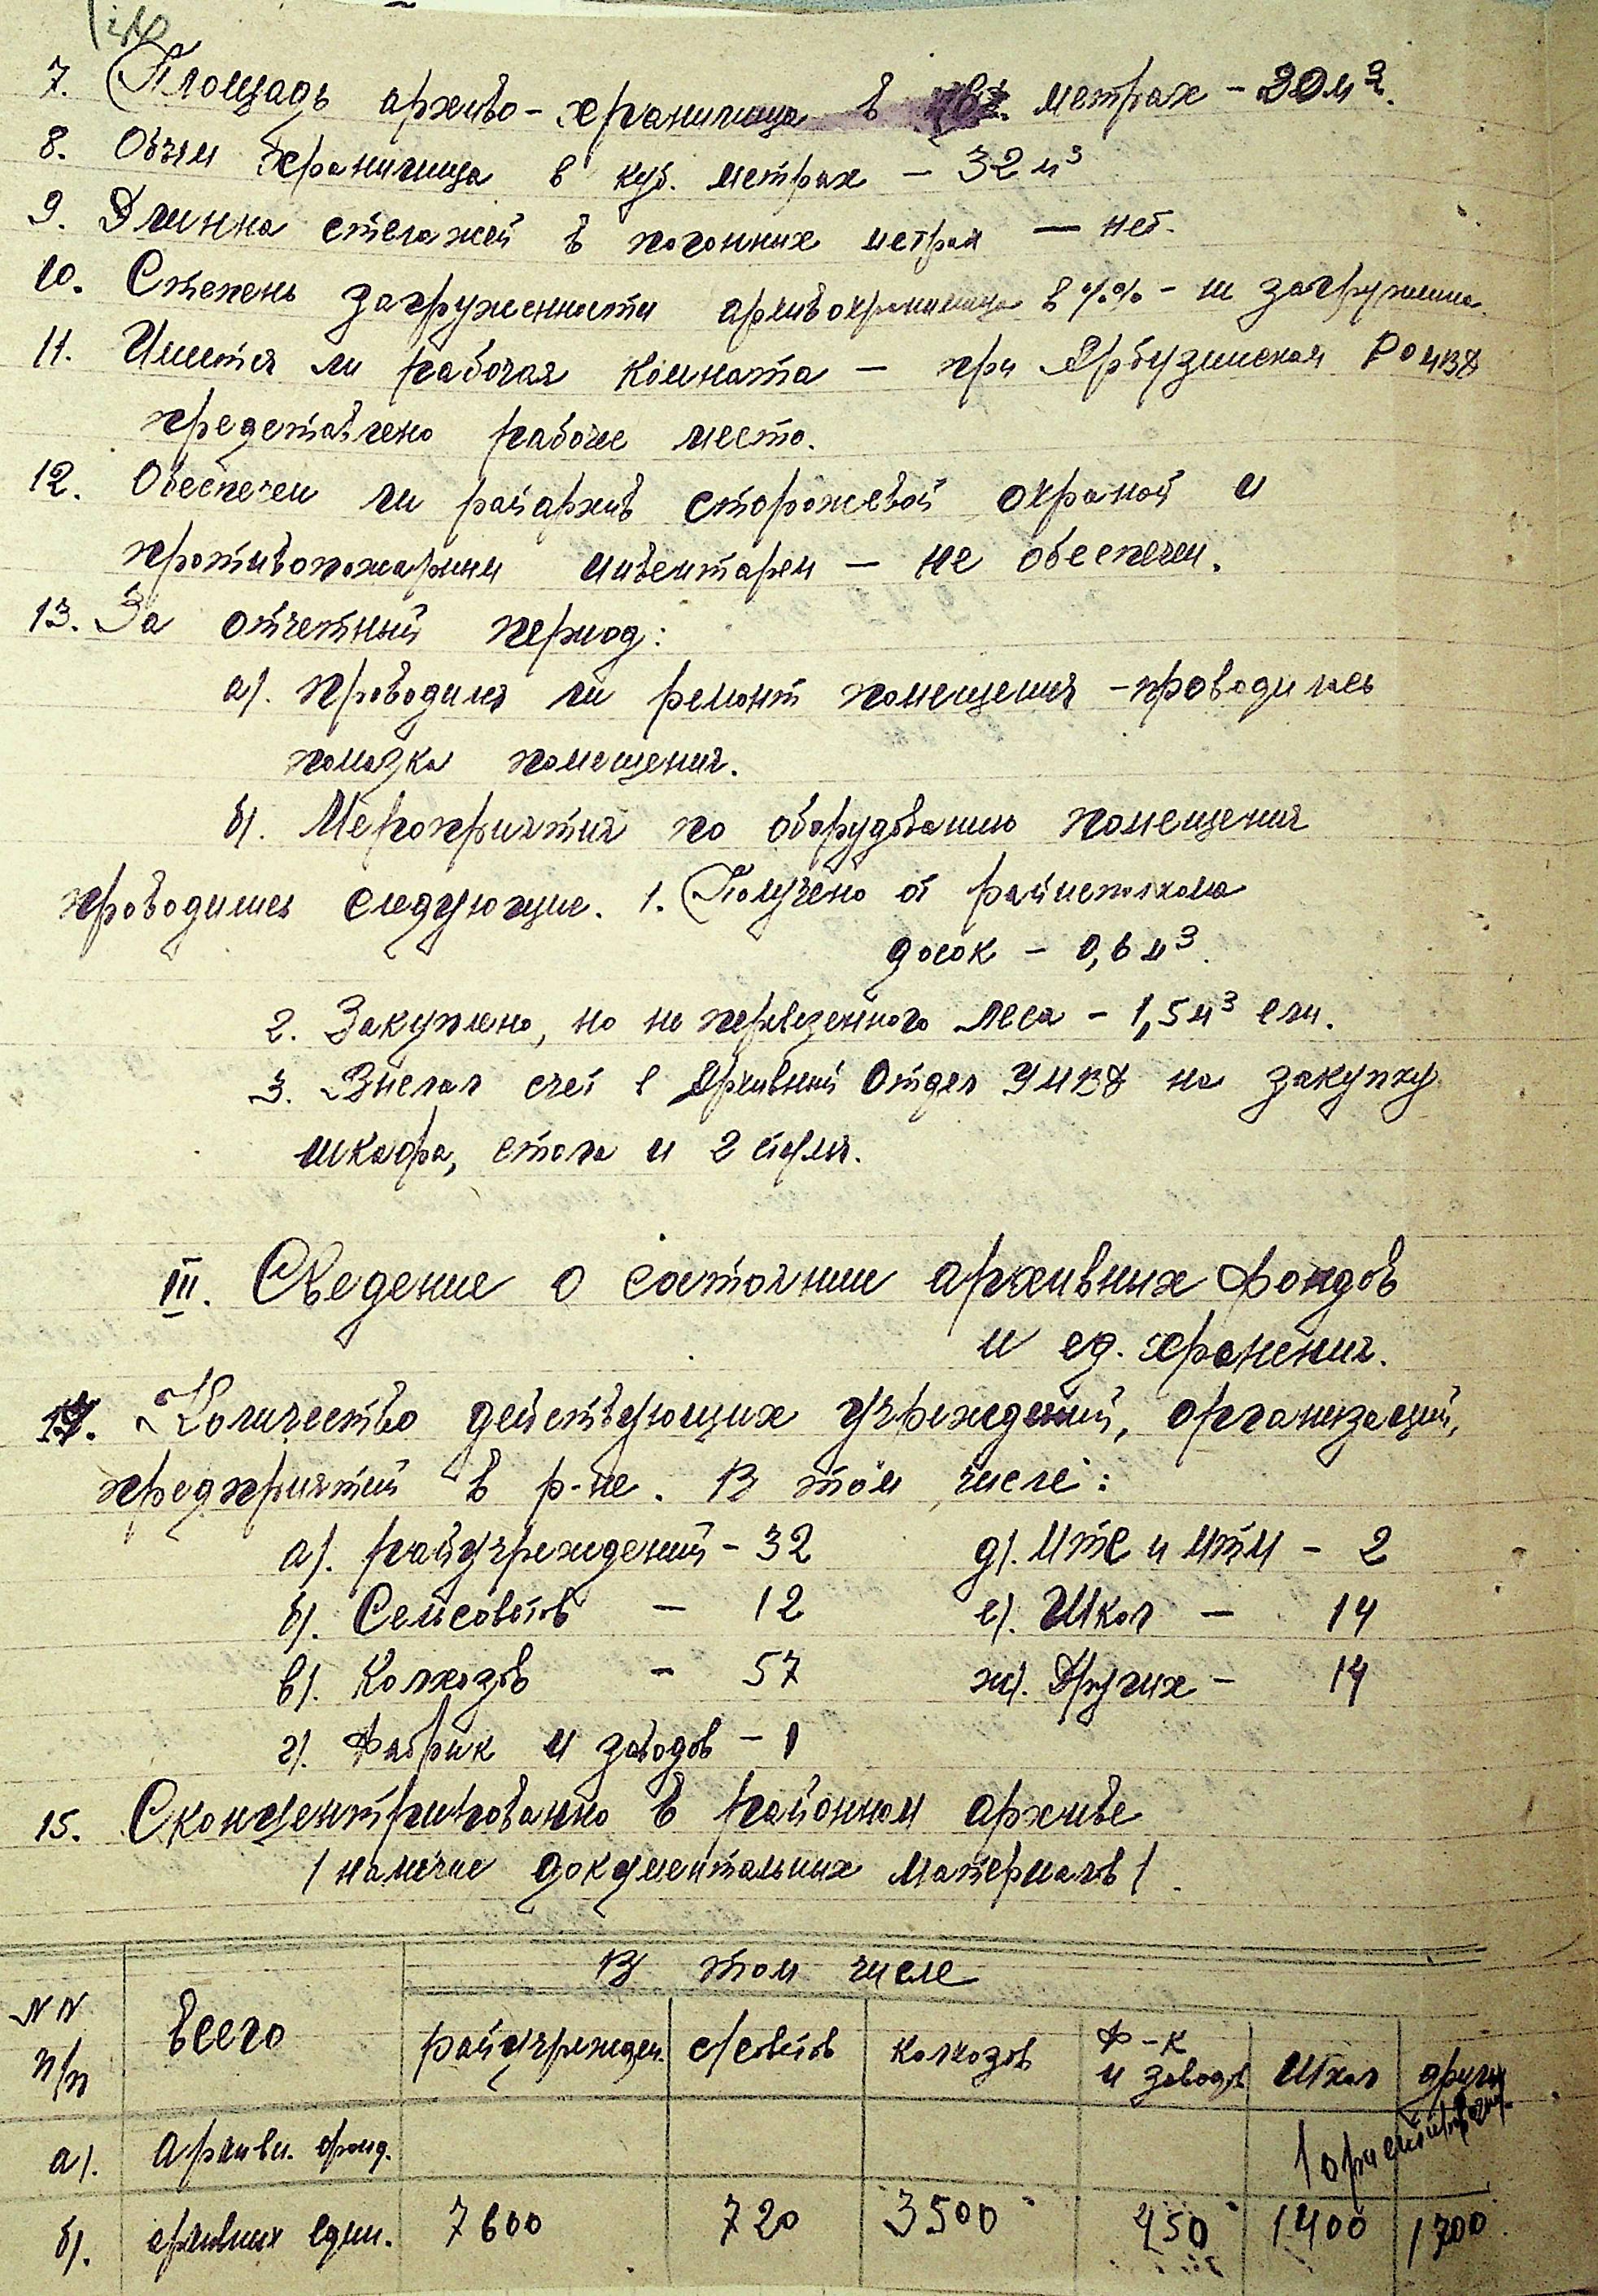 7. Площадь архиво-хранилища в кв. метрах - 20 м².
8. Обьем хранилища в куб. метрах - 32 м³
9. Длинна стелажей в погонных метрах — нет.
10. Степень загруженности архивохранилища в %% - не загружена.
11. Имется ли рабочая комната - при Арбузинском РОМВД
представлено рабоче место.
12. Обеспечен ли райархив сторожевой охраной и
противопожарным инвентарем - не обеспечен.
13. За отчетный период:
а). проводился ли ремонт помещения - проводилась
помазка помещения.
б). Мероприятия по оборудованию помещения
проводились следующие. 1. Получено от райисполкома
досок - 0,6 м³.
2. Закуплено, но не перевезенного леса - 1,5 м³ ели.
3. Выслал счет в Архивный Отдел УМВД на закупку
шкафа, стола и 2 стулья.
III. Сведение о состоянии архивных фондов
и ед. хранения.
14. Количество действующих учреждений, организаций,
предприятий в р-не. В том числе:
а). райучреждений - 32 д). МТС и МТМ - 2
б). Сельсоветов - 12 е). Школ - 14
в). Колхозов - 57 ж). Других - 14
г). Фабрик и заводов - 1
15. Сконцентрированно в районном архиве
/наличие документальных материалов/.
В том числе
NN п/п Всего райучрежден. с/советов колхозов ф-к и заводов школ других
а). Архивн. фонд. /ориентировочн.
б). архивных един. 7600 720 3500 450 1400 1700